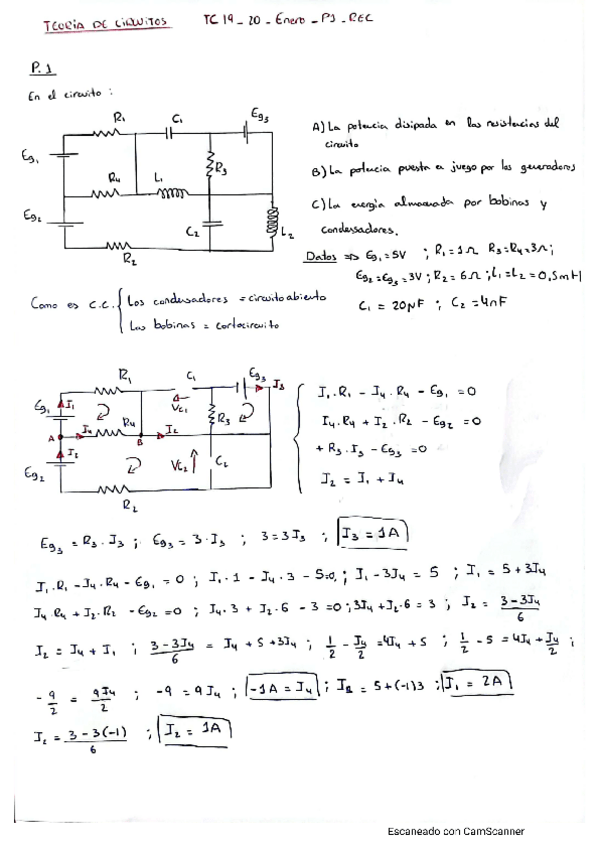 TEORIA DE CIRCUITOS TC 19_20_Enero_P1_REC
P.1
En el circuito:
R₁
C₁
Eg₃
Eg₁
R₃
R₄
L₁
Eg₂
C₂
L₂
R₂
A) La potencia disipada en las resistencias del
circuito
B) La potencia puesta en juego por los generadores
C) La energia almacenada por bobinas y
condensadores.
Datos => Eg₁ = 5V ; R₁ = 1Ω R₃ = R₄ = 3Ω ;
Eg₂ = Eg₃ = 3V ; R₂ = 6Ω ; L₁ = L₂ = 0,5mH
C₁ = 20μF ; C₂ = 4nF
Como es C.C. { Los condensadores = circuito abierto
Las bobinas = cortocircuito
R₁
C₁
Eg₃
I₃
Eg₁
I₁
Vc₁
R₃
I₄
R₄
I₂
A
B
I₂
Vc₂
C₂
Eg₂
R₂
I₁·R₁ - I₄·R₄ - Eg₁ = 0
I₄·R₄ + I₂·R₂ - Eg₂ = 0
+ R₃·I₃ - Eg₃ = 0
I₂ = I₁ + I₄
Eg₃ = R₃·I₃ ; Eg₃ = 3·I₃ ; 3 = 3I₃ ; I₃ = 1A
I₁·R₁ - I₄·R₄ - Eg₁ = 0 ; I₁·1 - I₄·3 - 5 = 0 ; I₁ - 3I₄ = 5 ; I₁ = 5 + 3I₄
I₄·R₄ + I₂·R₂ - Eg₂ = 0 ; I₄·3 + I₂·6 - 3 = 0 ; 3I₄ + I₂·6 = 3 ; I₂ = (3 - 3I₄)/6
I₂ = I₄ + I₁ ; (3 - 3I₄)/6 = I₄ + 5 + 3I₄ ; 1/2 - I₄/2 = 4I₄ + 5 ; 1/2 - 5 = 4I₄ + I₄/2 ;
-9/2 = 9I₄/2 ; -9 = 9I₄ ; -1A = I₄ ; I₁ = 5 + (-1)3 ; I₁ = 2A
I₂ = (3 - 3(-1))/6 ; I₂ = 1A
Escaneado con CamScanner